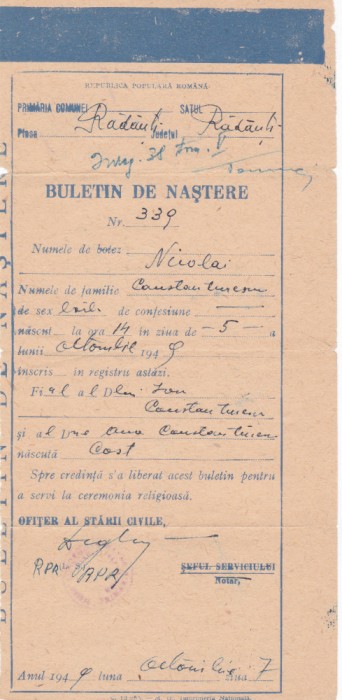 REPUBLICA POPULARĂ ROMÂNĂ
PRIMĂRIA COMUNEI SATUL
Rădăuți Rădăuți
Plasa Județul
BULETIN DE NAȘTERE
Nr. 339
Numele de botez
Nicolai
Numele de familie Constantinescu
de sex de confesiune —
născut la ora 14 în ziua de — 5 — a
lunii Octombrie 1949
înscris în registru astăzi.
Fi al al D-lui Ion
Constantinescu
și al D-nei Ana Constantinescu
născută Cost
Spre credință s'a liberat acest buletin pentru
a servi la ceremonia religioasă.
OFIȚER AL STĂRII CIVILE,
RPR RPR
ȘEFUL SERVICIULUI
Notar,
Anul 1949 luna Octombrie ziua 7
BULETIN DE NAȘTERE